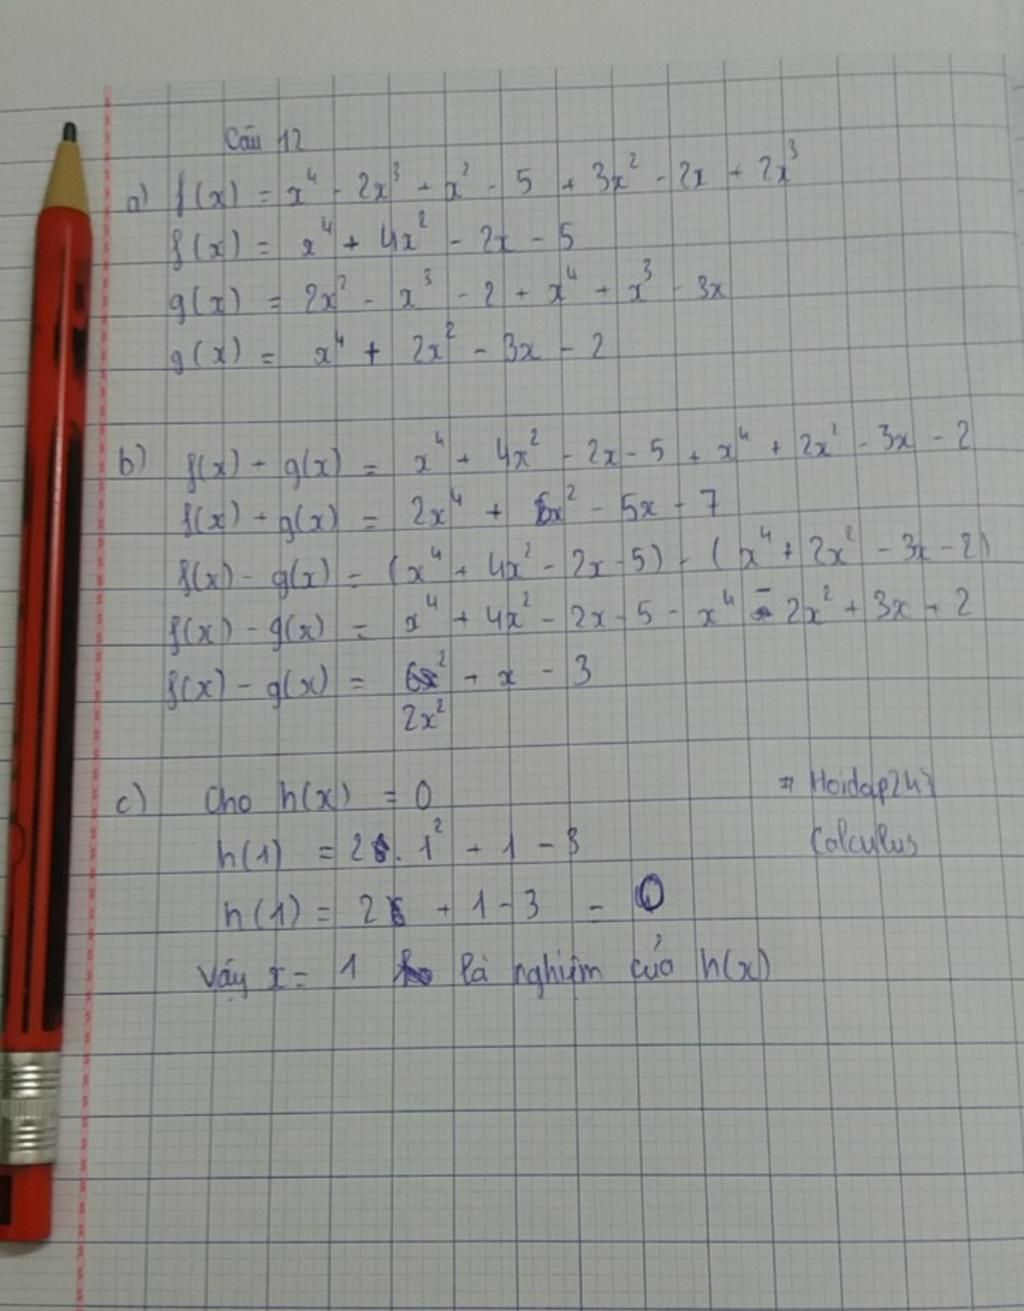 Câu 12
a) f(x) = x⁴ - 2x³ + x² - 5 + 3x² - 2x + 2x³
f(x) = x⁴ + 4x² - 2x - 5
g(x) = 2x² - x³ - 2 + x⁴ + x³ - 3x
g(x) = x⁴ + 2x² - 3x - 2
b) f(x) + g(x) = x⁴ + 4x² - 2x - 5 + x⁴ + 2x² - 3x - 2
f(x) + g(x) = 2x⁴ + 6x² - 5x - 7
f(x) - g(x) = (x⁴ + 4x² - 2x - 5) - (x⁴ + 2x² - 3x - 2)
f(x) - g(x) = x⁴ + 4x² - 2x - 5 - x⁴ - 2x² + 3x + 2
f(x) - g(x) = 6x² + x - 3
2x²
c) Cho h(x) = 0
h(1) = 2 . 1² + 1 - 3
h(1) = 2 + 1 - 3 = 0
Vậy x = 1 là nghiệm của h(x)
Hoidap247
Calculus